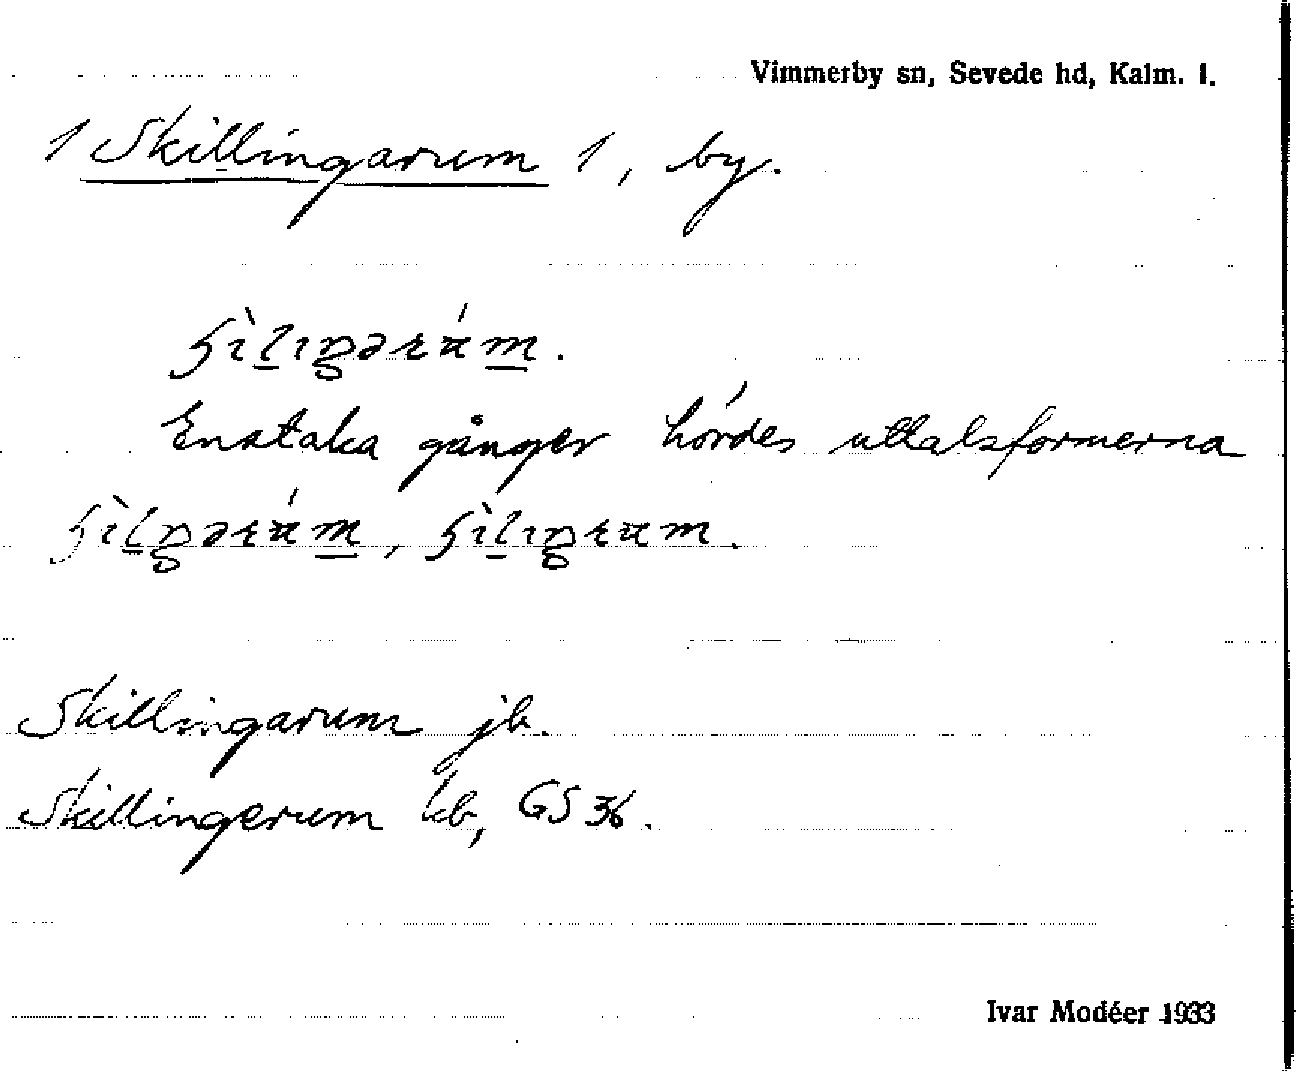 Vimmerby sn, Sevede hd, Kalm. l.
1 Skillingarum 1, by.
Enstaka gånger hördes uttalsformerna
Skillingarum jb.
Skillingerum kb, GS 36.
Ivar Modéer 1933